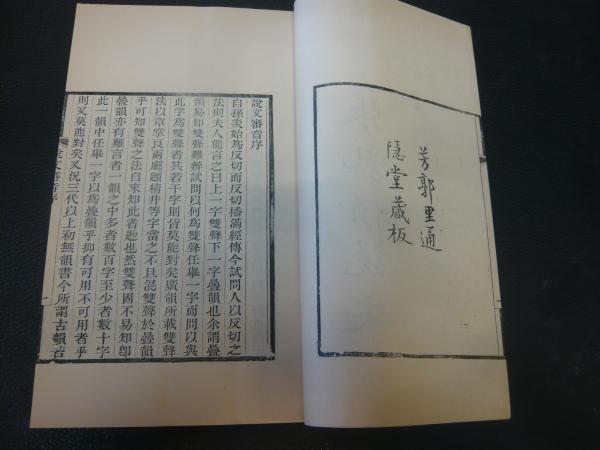 芳郭里通
隱堂藏板
說文審音序
自孫炎始爲反切而反切播滿經傳今試問人以反切之
法則夫人能言之曰上一字雙聲下一字疊韻也余謂疊
韻易知雙聲難辨試問以何爲雙聲任舉一字而問以與
此字爲雙聲者其若干字則皆莫能對矣廣韻所載雙聲
法以章掌良兩廳題精井等字當之不且混雙聲於疊韻
乎可知雙聲之法自來知此者尠也然雙聲固不易知卽
疊韻亦有難言者一韻之中多者數百字至少者數十字
此一韻中任舉一字以爲疊韻乎抑有可用不可用者乎
則又莫能對矣又況三代以上初無韻書今所謂古韻若
說文審音序
一